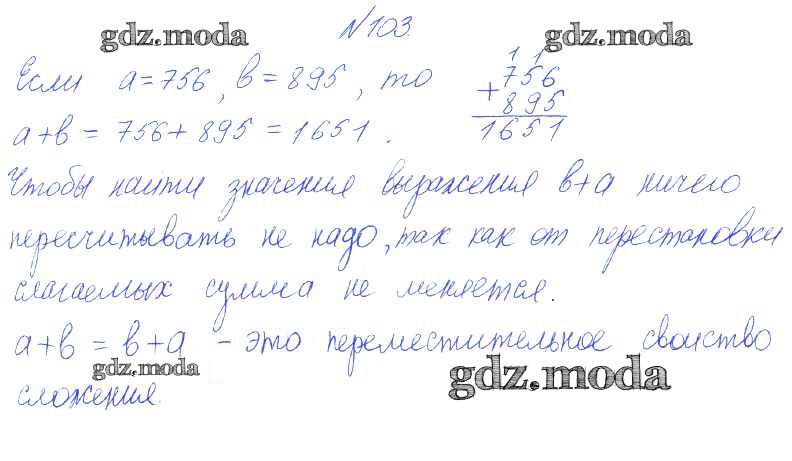 №103.
gdz.moda gdz.moda
Если a=756, в=895, то
a+в = 756+895 = 1651.
1 1
756
+
895
1651
Чтобы найти значения выражения в+а ничего
пересчитывать не надо, так как от перестановки
слагаемых сумма не меняется.
a+в = в+а - это переместительное свойство
gdz.moda gdz.moda
сложения.